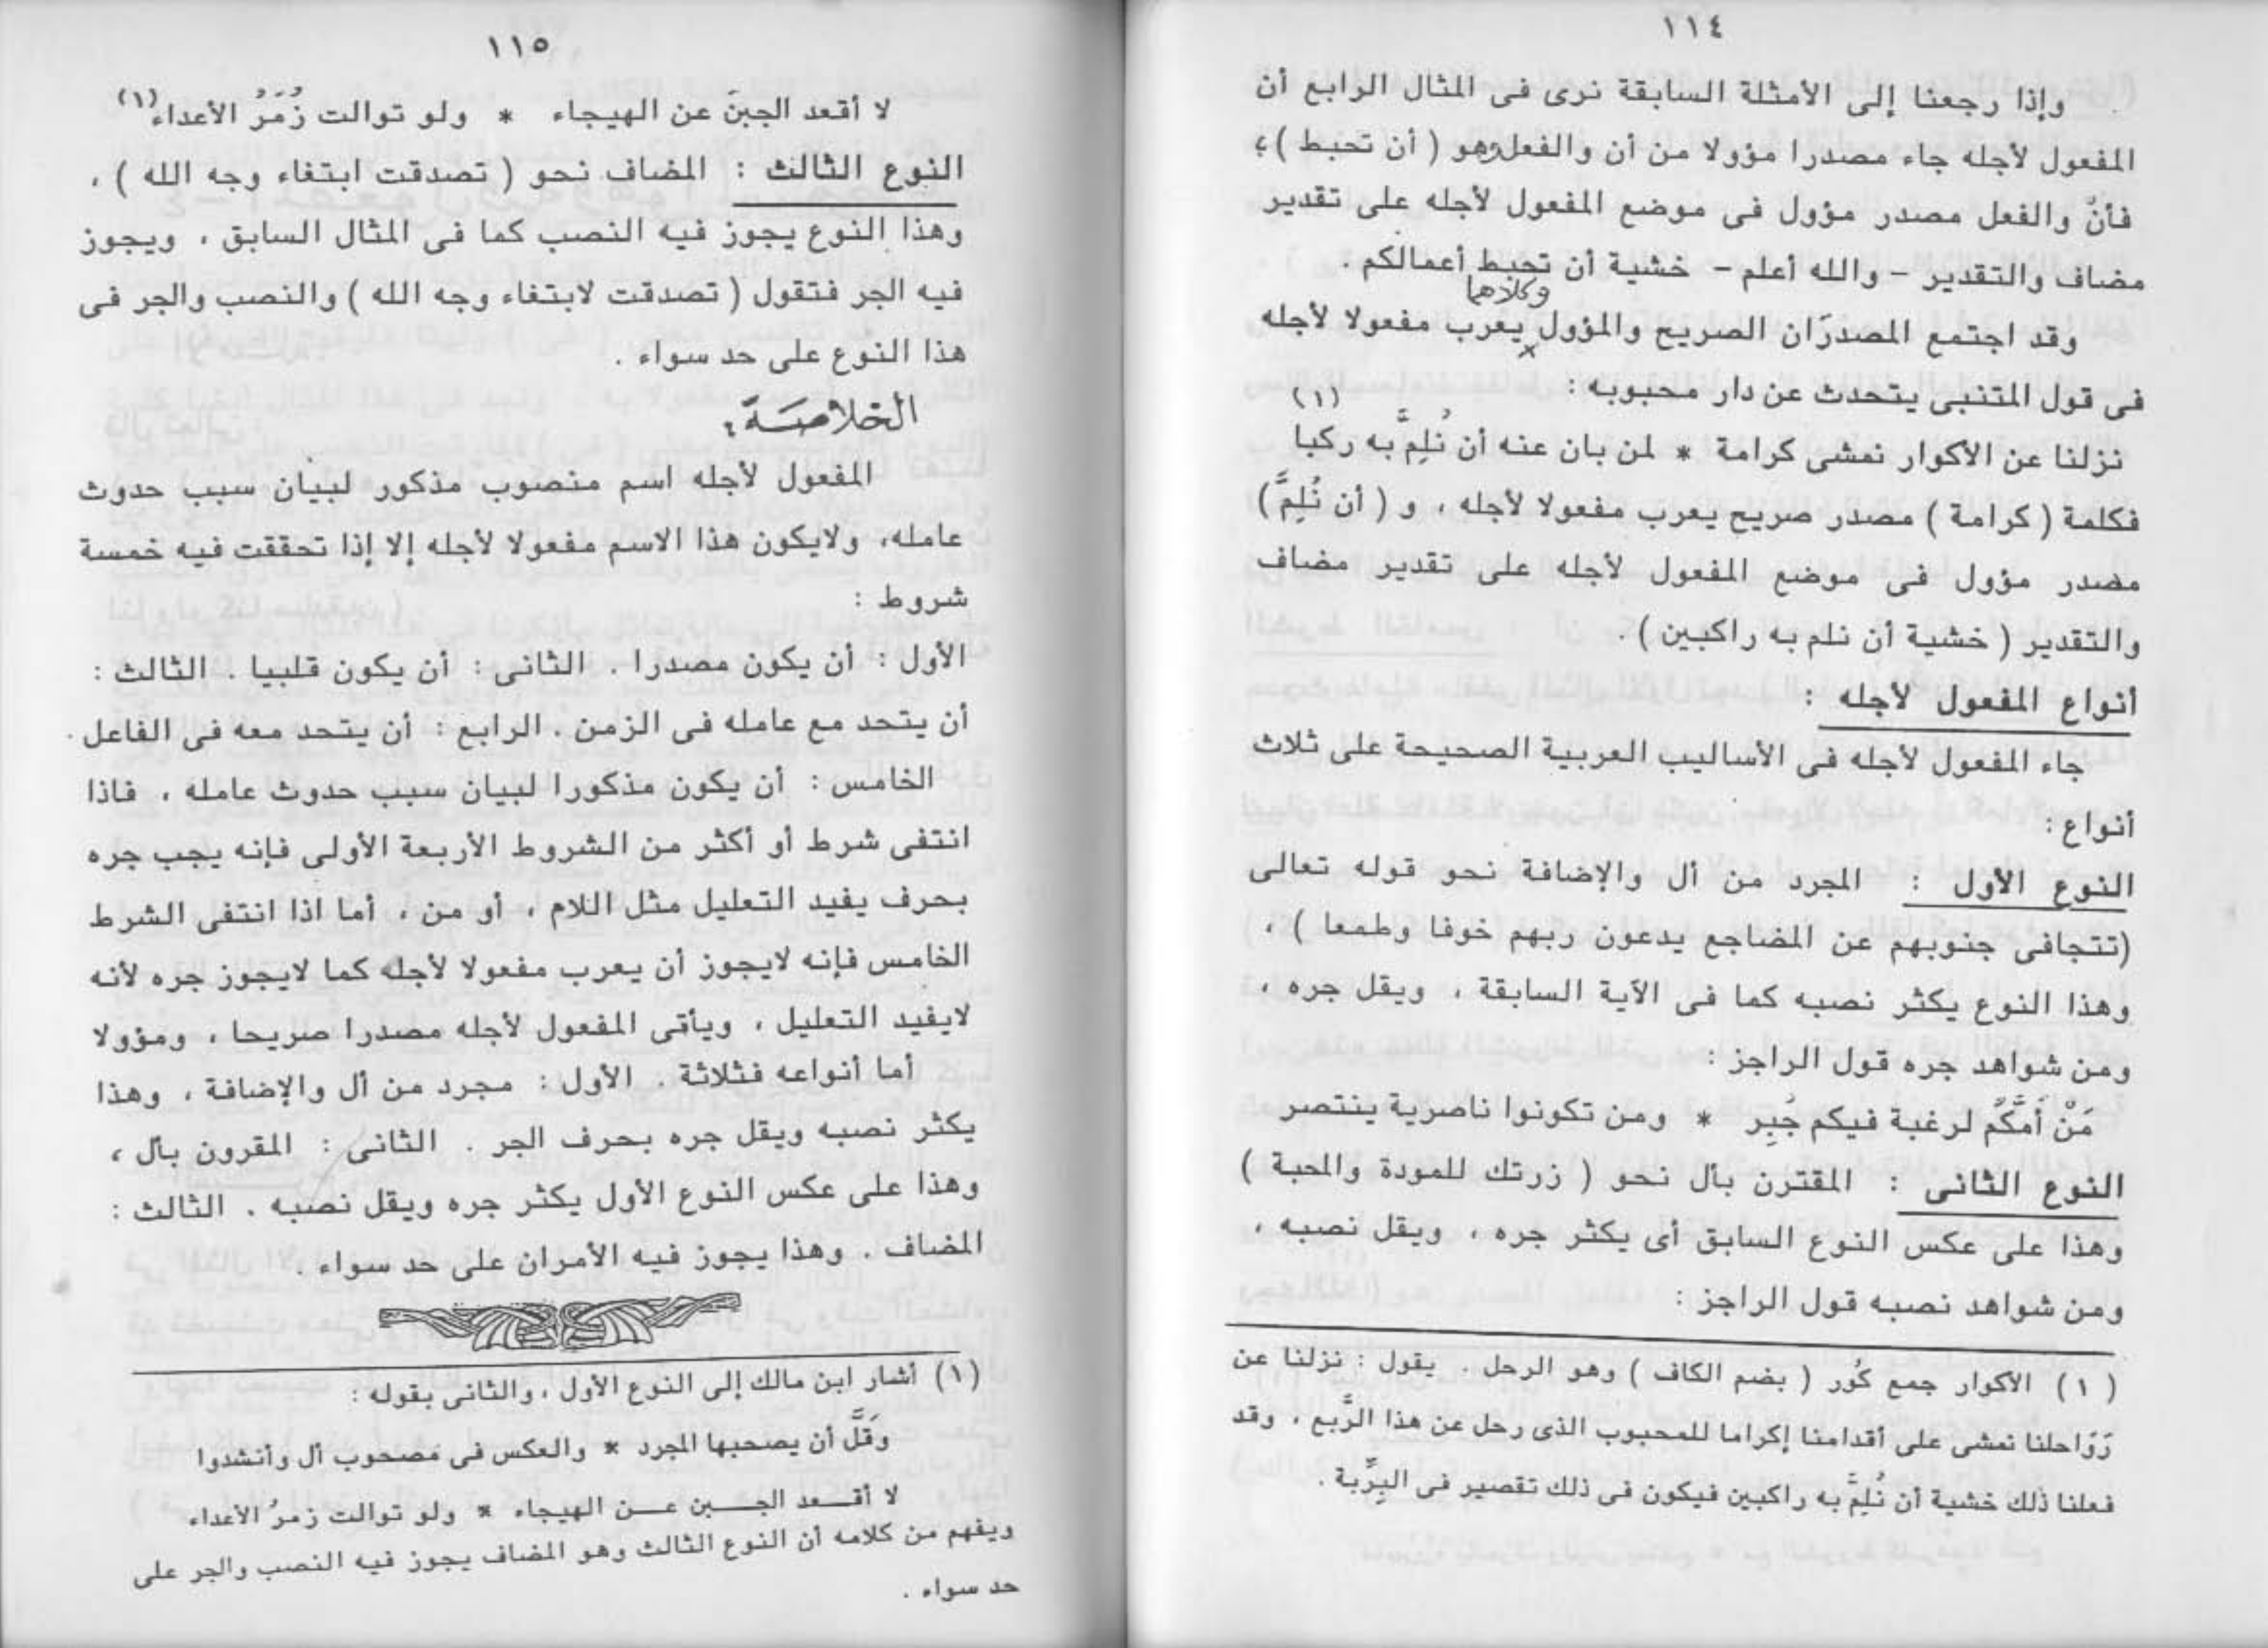 ١١٤
وإذا رجعنا إلى الأمثلة السابقة نرى فى المثال الرابع أن
المفعول لأجله جاء مصدرا مؤولا من أن والفعل وهو ( أن تحبط ) ؛
فأنْ والفعل مصدر مؤول فى موضع المفعول لأجله على تقدير
مضاف والتقدير - والله أعلم - خشية أن تحبط أعمالكم .
وكلاهما
وقد اجتمع المصدرَان الصريح والمؤول يعرب مفعولا لأجله
فى قول المتنبى يتحدث عن دار محبوبه : (١)
نزلنا عن الأكوار نمشى كرامة * لمن بان عنه أن نُلِمَّ به ركبا
فكلمة ( كرامة ) مصدر صريح يعرب مفعولا لأجله ، و ( أن نُلِمَّ )
مصدر مؤول فى موضع المفعول لأجله على تقدير مضاف
والتقدير ( خشية أن نلم به راكبين ) .
أنواع المفعول لأجله :
جاء المفعول لأجله فى الأساليب العربية الصحيحة على ثلاث
أنواع :
النوع الأول : المجرد من أل والإضافة نحو قوله تعالى
(تتجافى جنوبهم عن المضاجع يدعون ربهم خوفا وطمعا ) ،
وهذا النوع يكثر نصبه كما فى الآية السابقة ، ويقل جره ،
ومن شواهد جره قول الراجز :
مَنْ أَمَّكُمْ لرغبة فيكم جُبِر * ومن تكونوا ناصرية ينتصر
النوع الثانى : المقترن بأل نحو ( زرتك للمودة والمحبة )
وهذا على عكس النوع السابق أى يكثر جره ، ويقل نصبه ،
ومن شواهد نصبه قول الراجز :
( ١ ) الأكوار جمع كُور ( بضم الكاف ) وهو الرحل . يقول : نزلنا عن
رَوَاحلنا نمشى على أقدامنا إكراما للمحبوب الذى رحل عن هذا الرَّبع ، وقد
فعلنا ذلك خشية أن نُلِمَّ به راكبين فيكون فى ذلك تقصير فى البِرِّبة .
١١٥
لا أقعد الجبنَ عن الهيجاء * ولو توالت زُمَرُ الأعداء (١)
النوع الثالث : المضاف نحو ( تصدقت ابتغاء وجه الله ) ،
وهذا النوع يجوز فيه النصب كما فى المثال السابق ، ويجوز
فيه الجر فتقول ( تصدقت لابتغاء وجه الله ) والنصب والجر فى
هذا النوع على حد سواء .
الخلاصَة :
المفعول لأجله اسم منصوب مذكور لبيان سبب حدوث
عامله، ولايكون هذا الاسم مفعولا لأجله إلا إذا تحققت فيه خمسة
شروط :
الأول : أن يكون مصدرا . الثانى : أن يكون قلبيا . الثالث :
أن يتحد مع عامله فى الزمن . الرابع : أن يتحد معه فى الفاعل .
الخامس : أن يكون مذكورا لبيان سبب حدوث عامله ، فاذا
انتفى شرط أو أكثر من الشروط الأربعة الأولى فإنه يجب جره
بحرف يفيد التعليل مثل اللام ، أو من ، أما اذا انتفى الشرط
الخامس فإنه لايجوز أن يعرب مفعولا لأجله كما لايجوز جره لأنه
لايفيد التعليل ، ويأتى المفعول لأجله مصدرا صريحا ، ومؤولا
أما أنواعه فثلاثة . الأول : مجرد من أل والإضافة ، وهذا
يكثر نصبه ويقل جره بحرف الجر . الثانى : المقرون بأل ،
وهذا على عكس النوع الأول يكثر جره ويقل نصبه . الثالث :
المضاف . وهذا يجوز فيه الأمران على حد سواء .
(١) أشار ابن مالك إلى النوع الأول ، والثانى بقوله :
وَقَلَّ أن يصحبها المجرد * والعكس فى مصحوب أل وأنشدوا
لا أقـــعد الجـــبن عـــن الهيجاء * ولو توالت زمرُ الأعداء
ويفهم من كلامه أن النوع الثالث وهو المضاف يجوز فيه النصب والجر على
حد سواء .